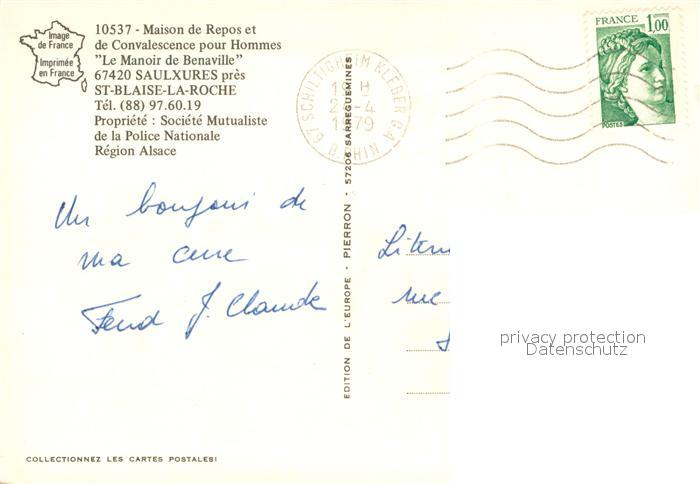 Image
de France
Imprimée
en France
10537 - Maison de Repos et
de Convalescence pour Hommes
"Le Manoir de Benaville"
67420 SAULXURES près
ST-BLAISE-LA-ROCHE
Tél. (88) 97.60.19
Propriété : Société Mutualiste
de la Police Nationale
Région Alsace
67 SCHILTIGHEIM KLEBER GA
B.RHIN
FRANCE 1,00
POSTES
Un bonjour de
ma cure
J. Claude
EDITION DE L'EUROPE · PIERRON · 57206 SARREGUEMINES
rue
privacy protection
Datenschutz
COLLECTIONNEZ LES CARTES POSTALES!